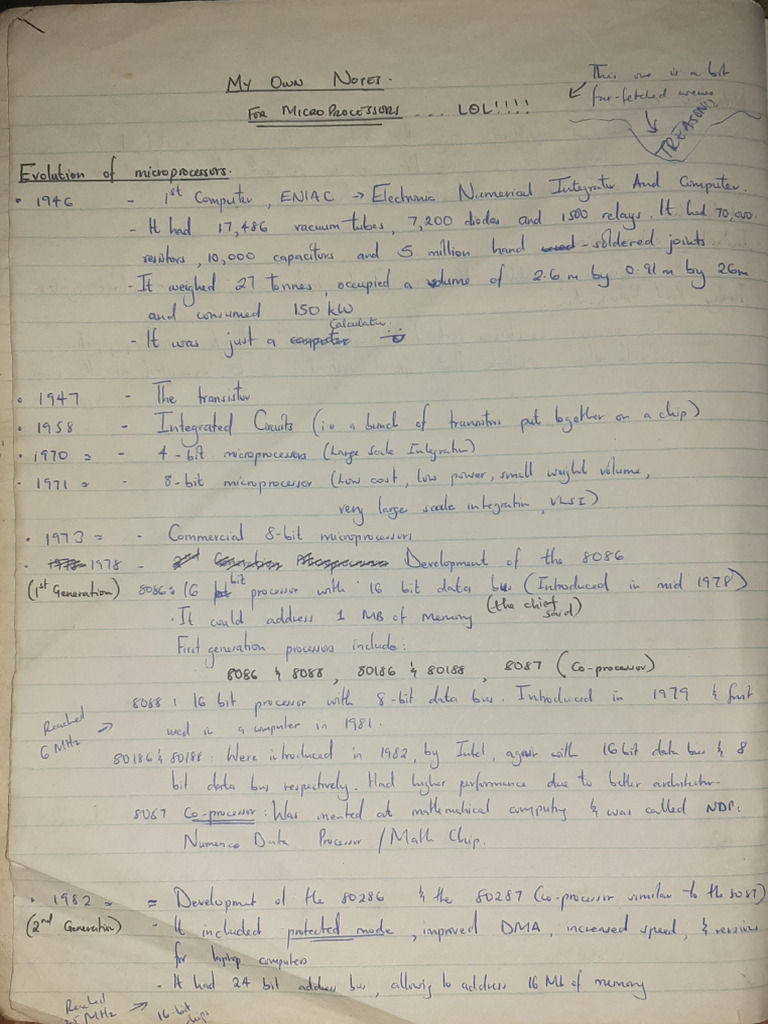 MY OWN NOTES.
FOR MICROPROCESSORS .... LOL!!!!
This one is a bit
far-fetched
TREASON
Evolution of microprocessors.
• 1946 - 1st Computer, ENIAC → Electronic Numerical Integrator And Computer.
- It had 17,486 vacuum tubes, 7,200 diodes and 1500 relays. It had 70,000
resistors, 10,000 capacitors and 5 million hand-soldered joints
- It weighed 27 tonnes, occupied a volume of 2.6 m by 0.91 m by 26m
and consumed 150 kW
- It was just a computer Calculator
• 1947 - The transistor
• 1958 - Integrated Circuits (i.e a bunch of transistors put together on a chip)
• 1970 = - 4-bit microprocessors (Large Scale Integration)
• 1971 = - 8-bit microprocessor (Low cost, low power, small weight volume,
very large scale integration, VLSI)
• 1973 = - Commercial 8-bit microprocessors
• 1978 - 2nd Generation Development of the 8086
(1st Generation) 8086: 16 bit processor with 16 bit data bus (Introduced in mid 1978)
• It could address 1 MB of Memory (the chief said)
First generation processors include:
8086 & 8088, 80186 & 80188, 8087 (Co-processor)
8088: 16 bit processor with 8-bit data bus. Introduced in 1979 & first
used in a computer in 1981.
Reached
6 MHz →
80186 & 80188: Were introduced in 1982, by Intel, again with 16 bit data bus & 8
bit data bus respectively. Had higher performance due to better architecture
8087 Co-processor: Was oriented at mathematical computing & was called NDP:
Numerico Data Processor / Math Chip.
• 1982 = = Development of the 80286 & the 80287 (Co-processor similar to the 8087)
(2nd Generation) - It included protected mode, improved DMA, increased speed, & versions
for laptop computers
- It had 24 bit address bus, allowing to address 16 Mb of memory
Reached
MHz →
16-bit